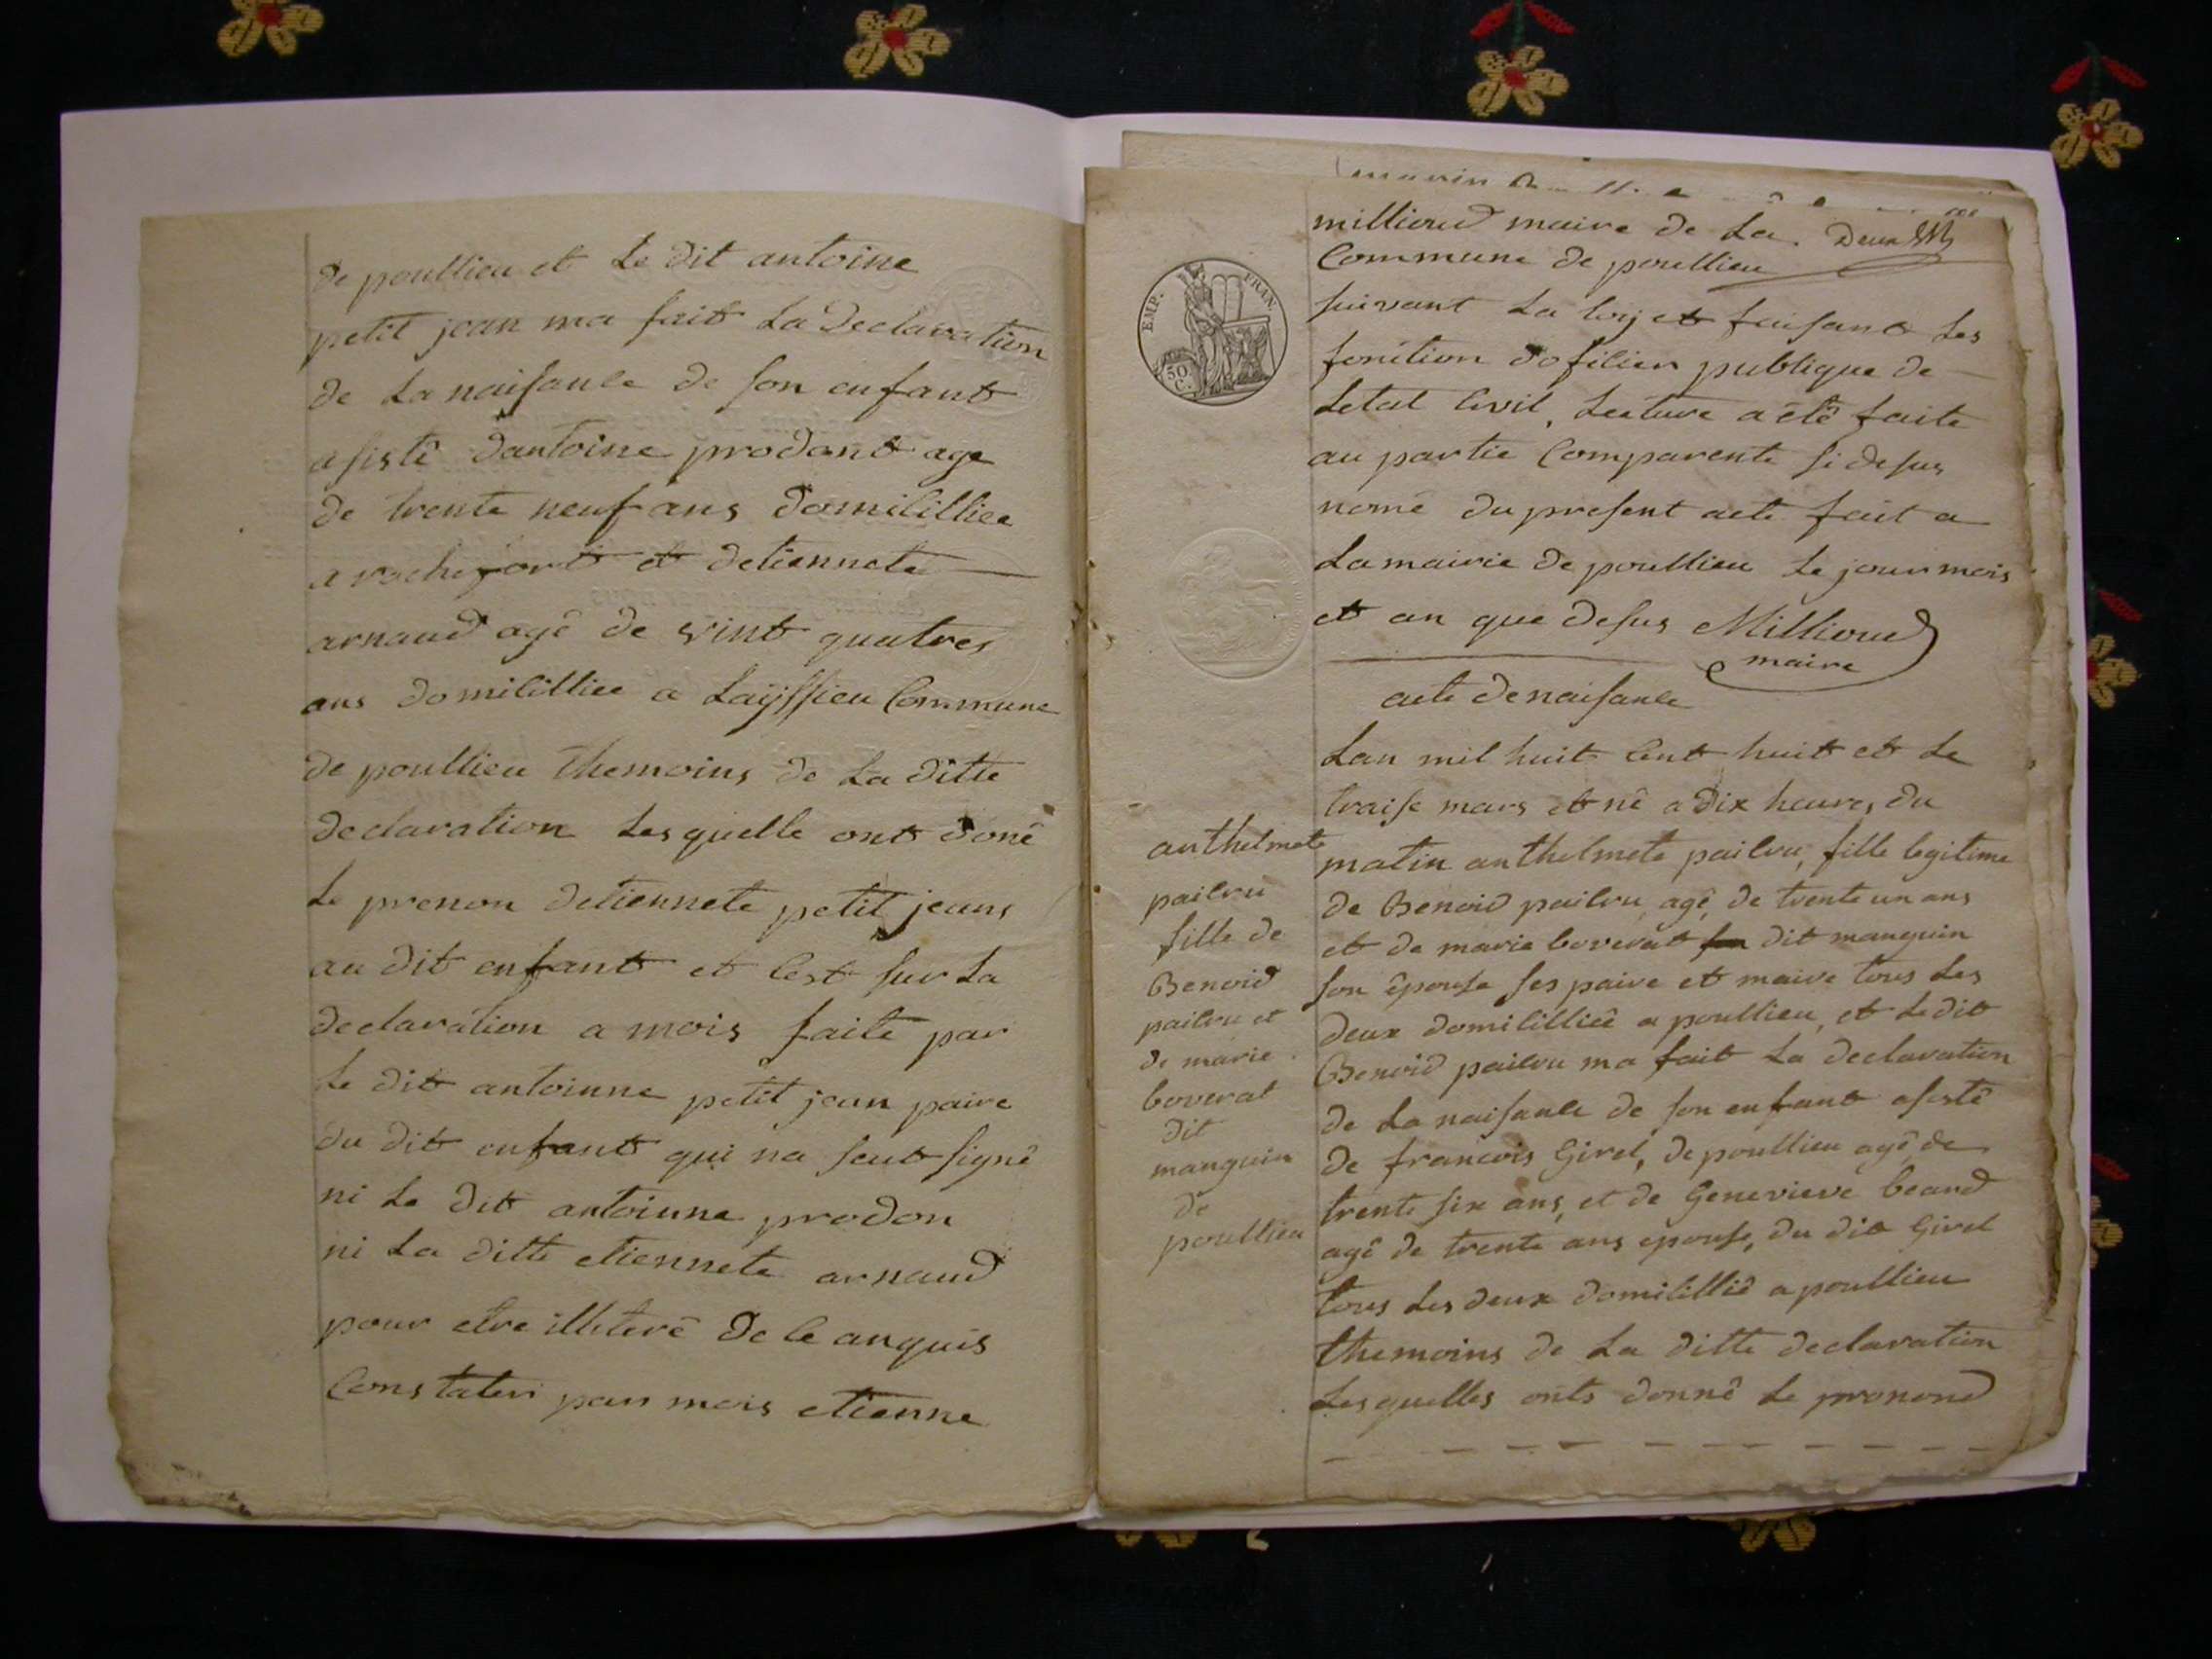 de poullieu et le dit antoine
petit jean ma fait la declaration
de la naisance de son enfant
asisté dantoine prodant age
de trente neuf ans domicilliee
a rochefort et detiennete
arnaud agé de vint quatres
ans domicilliee a layssieu Commune
de poullieu themoins de la ditte
declaration lesquelle ont doné
le prenon detiennete petit jeans
au dit enfant et cest sur la
declaration a mois faite par
le dit antoinne petit jean paire
du dit enfant qui na seut signé
ni le dit antoinne prodon
ni la ditte etiennete arnaud
pour etre illiteré de ce anquis
Constater par mois etienne
millioud maire de la
Deux
Commune de poullieu
suivant la loy et faisant les
fonction dofilier publique de
letat civil, lecture a été faite
au partie Comparente si desus
nomé du present acte fait a
la mairie de poullieu le jour mois
et an que desus Millioud
maire
acte de naisance
EMP. FRAN
50 C.
Lan mil huit cent huit et le
traise mars et né a dix heures du
matin anthelmete pailru, fille legitime
de Benoid pailru agé, de trente un ans
et de marie boverat dit manguin
son épouse ses paire et maire tous les
deux domicillié a poullieu, et le dit
Benoid pailru ma fait la declaration
de la naisance de son enfant asisté
de francois Girel, de poullieu agé de
trente six ans, et de Genevieve beaud
agé de trente ans epouse, du dit Girel
tous les deux domicillié a poullieu
themoins de la ditte declaration
lesquelles onts donné le pronond
anthelmete
pailru
fille de
Benoid
pailru et
de marie
boverat
dit
manguin
de
poullieu